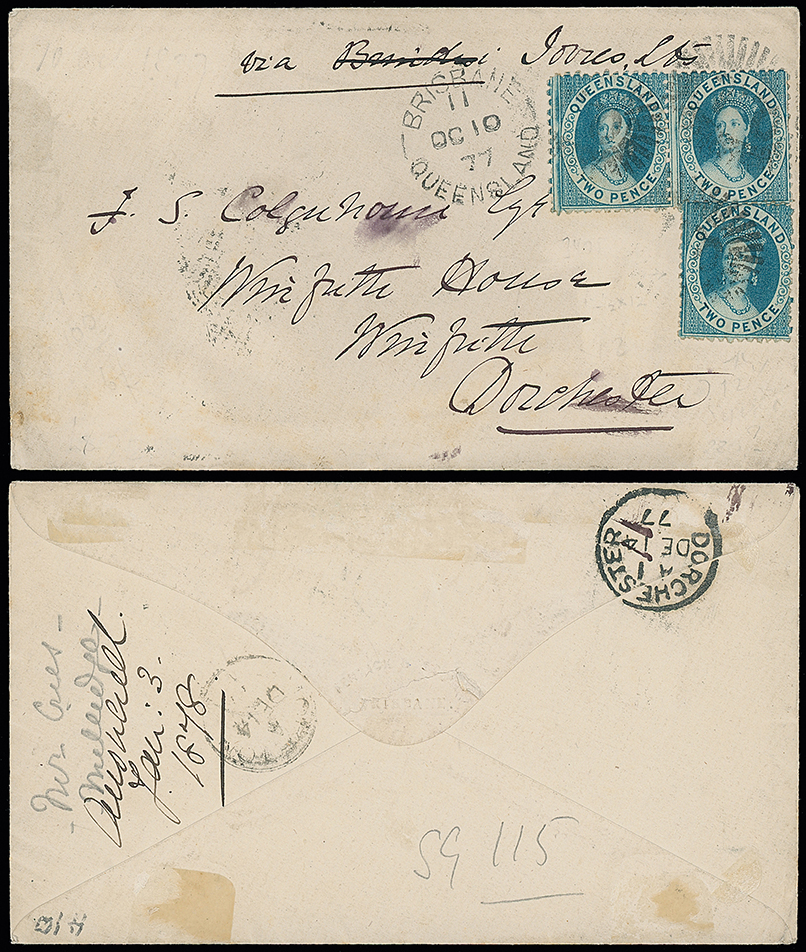 via Brindisi Torres Sts
BRISBANE
11
OC 10
77
QUEENSLAND
QUEENSLAND
TWO PENCE
QUEENSLAND
TWO PENCE
QUEENSLAND
TWO PENCE
J. S. Colquhoun Esqr
Winfrith House
Winfrith
Dorchester
DORCHESTER
A
DE 14
77
Answered
Jan: 3.
1878
DE 14
SG 115